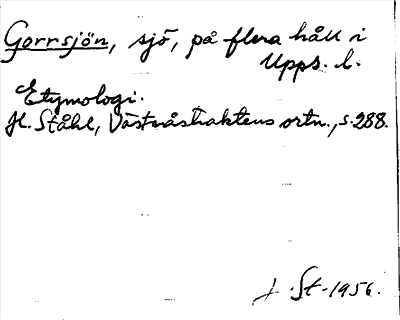 Gorrsjön, sjö, på flera håll i
Upps. l.
Etymologi.
H. Ståhl, Västeråstraktens ortn., s. 288.
J. St. 1956.